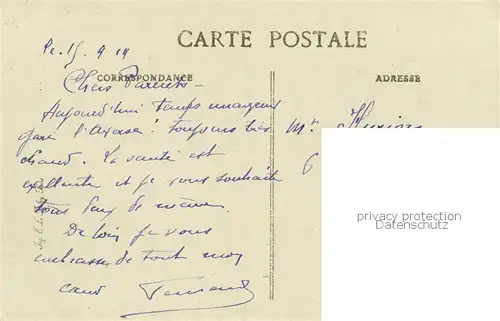 CARTE POSTALE
Le 15 9 14
CORRESPONDANCE
ADRESSE
Chers Parents -
Aujourd'hui temps
gare l'averse! toujours très
chaud. La santé est
excellente et je vous souhaite
tous deux de même.
De loin je vous
embrasse de tout mon
cœur Fernand
Mr
privacy protection
Datenschutz